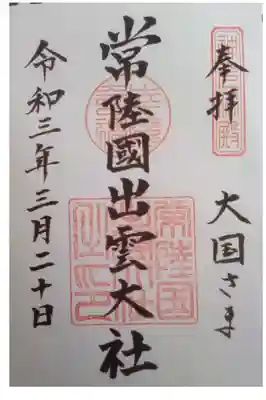 奉拝
大国さま
常陸國出雲大社
令和三年三月二十日